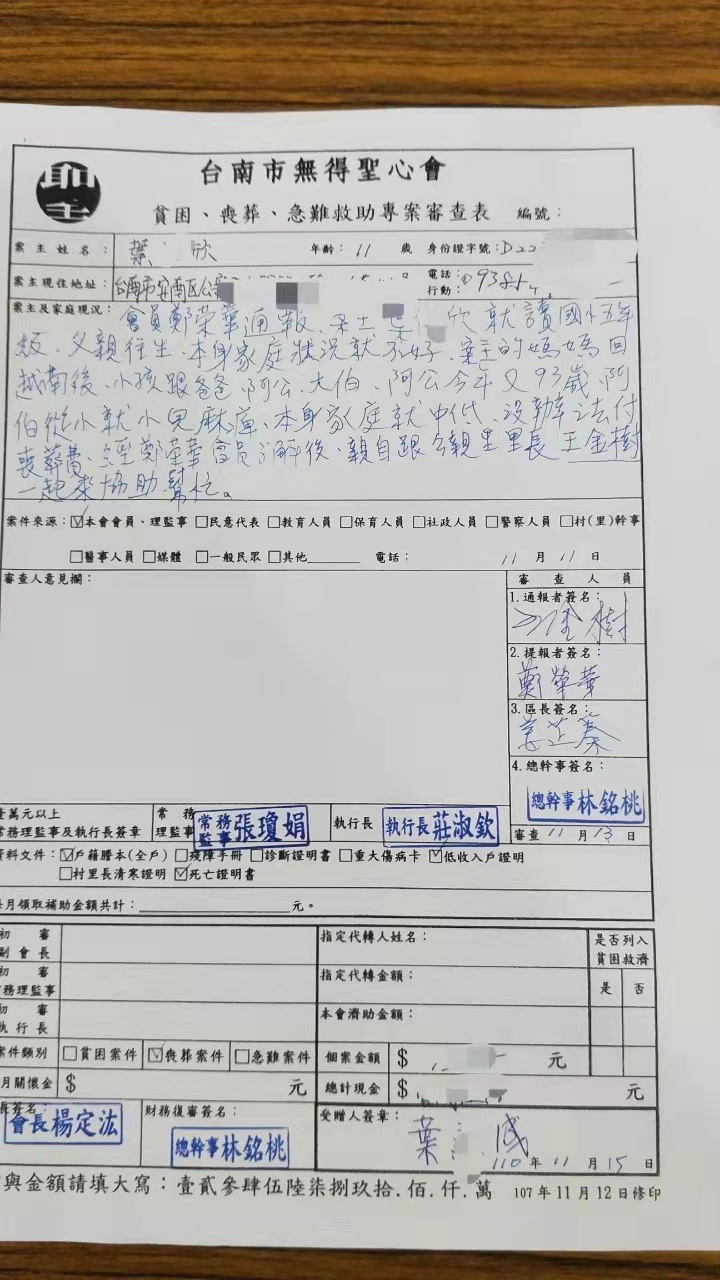 台南市無得聖心會
貧困、喪葬、急難救助專案審查表 編號：
案主姓名： 葉 欣 年齡： 11 歲 身份證字號： D22
案主現住地址： 台南市安南區公 電話： 行動： 0938
案主及家庭現況： 會員鄭榮華通報、案主葉 欣就讀國小五年
級、父親往生、本身家庭狀況就不好、案主的媽媽回
越南後、小孩跟爸爸、阿公、大伯、阿公今年又93歲、阿
伯從小就小兒麻痺、本身家庭就中低、沒辦法付
喪葬費、經鄭榮華會員了解後、親自跟公親里里長王金樹
一起來協助幫忙。
案件來源：☑本會會員、理監事 □民意代表 □教育人員 □保育人員 □社政人員 □警察人員 □村(里)幹事
□醫事人員 □媒體 □一般民眾 □其他 電話： 11 月 11 日
審查人意見欄： 審查人員
1.通報者簽名：
王金樹
2.提報者簽名：
鄭榮華
3.區長簽名：
4.總幹事簽名：
總幹事林銘桃
審查 11 月 13 日
萬元以上 常務
常務理監事及執行長簽章 理監事 常務監事張瓊娟 執行長 執行長莊淑欽
資料文件：☑戶籍謄本(全戶) □殘障手冊 □診斷證明書 □重大傷病卡 ☑低收入戶證明
□村里長清寒證明 ☑死亡證明書
月領取補助金額共計： 元。
初審
副會長
指定代轉人姓名： 是否列入貧困救濟
初審
務理監事
指定代轉金額： 是 否
初審
執行長
本會濟助金額：
案件類別 □貧困案件 ☑喪葬案件 □急難案件 個案金額 $ 元
月關懷金 $ 元 總計現金 $ 元
長簽名： 會長楊定汯 財務復審簽名： 總幹事林銘桃 受贈人簽章： 葉 成
110 年 11 月 15 日
與金額請填大寫：壹貳參肆伍陸柒捌玖拾.佰.仟.萬 107年11月12日修印